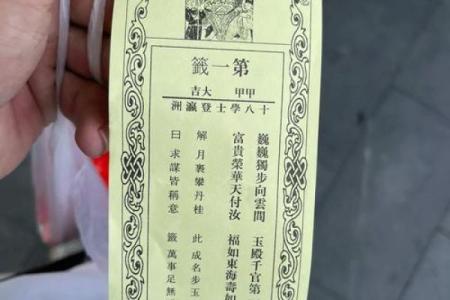 第一籤
甲甲 大吉
十八學士登瀛洲
巍巍獨步向雲間 玉殿千官第
富貴榮華天付汝 福如東海壽如
解 月裏攀丹桂 此 成名步玉
曰 求謀皆稱意 籤 萬事足無